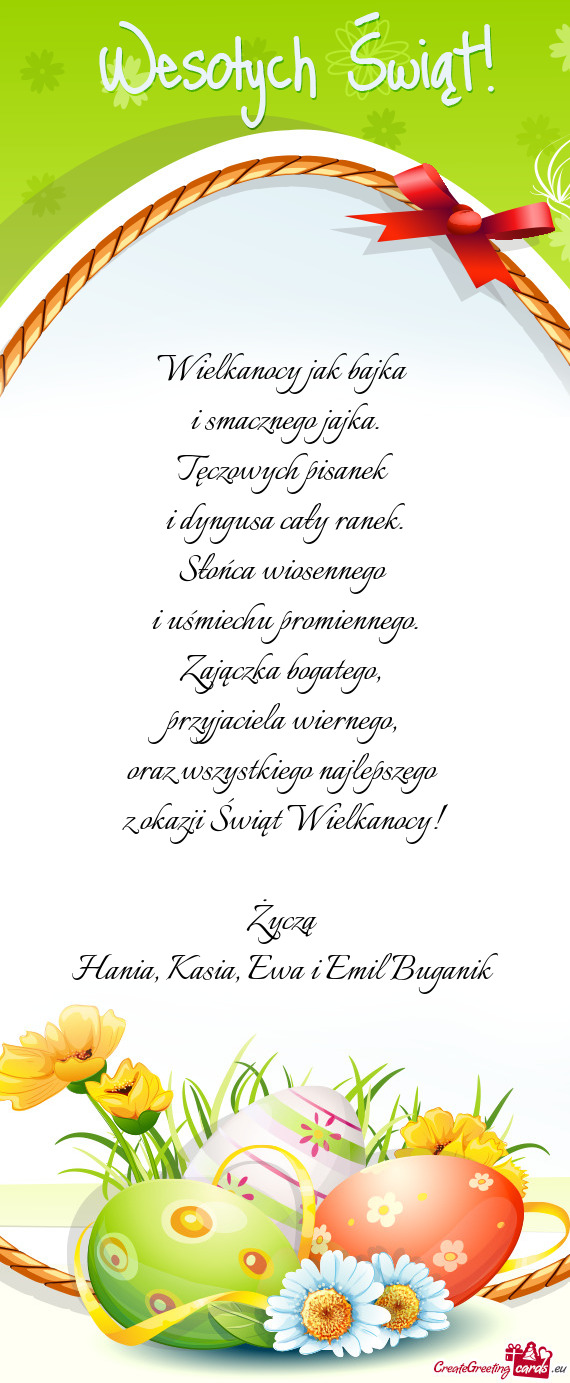 Wesołych Świąt!
Wielkanocy jak bajka
i smacznego jajka.
Tęczowych pisanek
i dyngusa cały ranek.
Słońca wiosennego
i uśmiechu promiennego.
Zajączka bogatego,
przyjaciela wiernego,
oraz wszystkiego najlepszego
z okazji Świąt Wielkanocy!
Życzą
Hania, Kasia, Ewa i Emil Buganik
CreateGreeting cards .eu